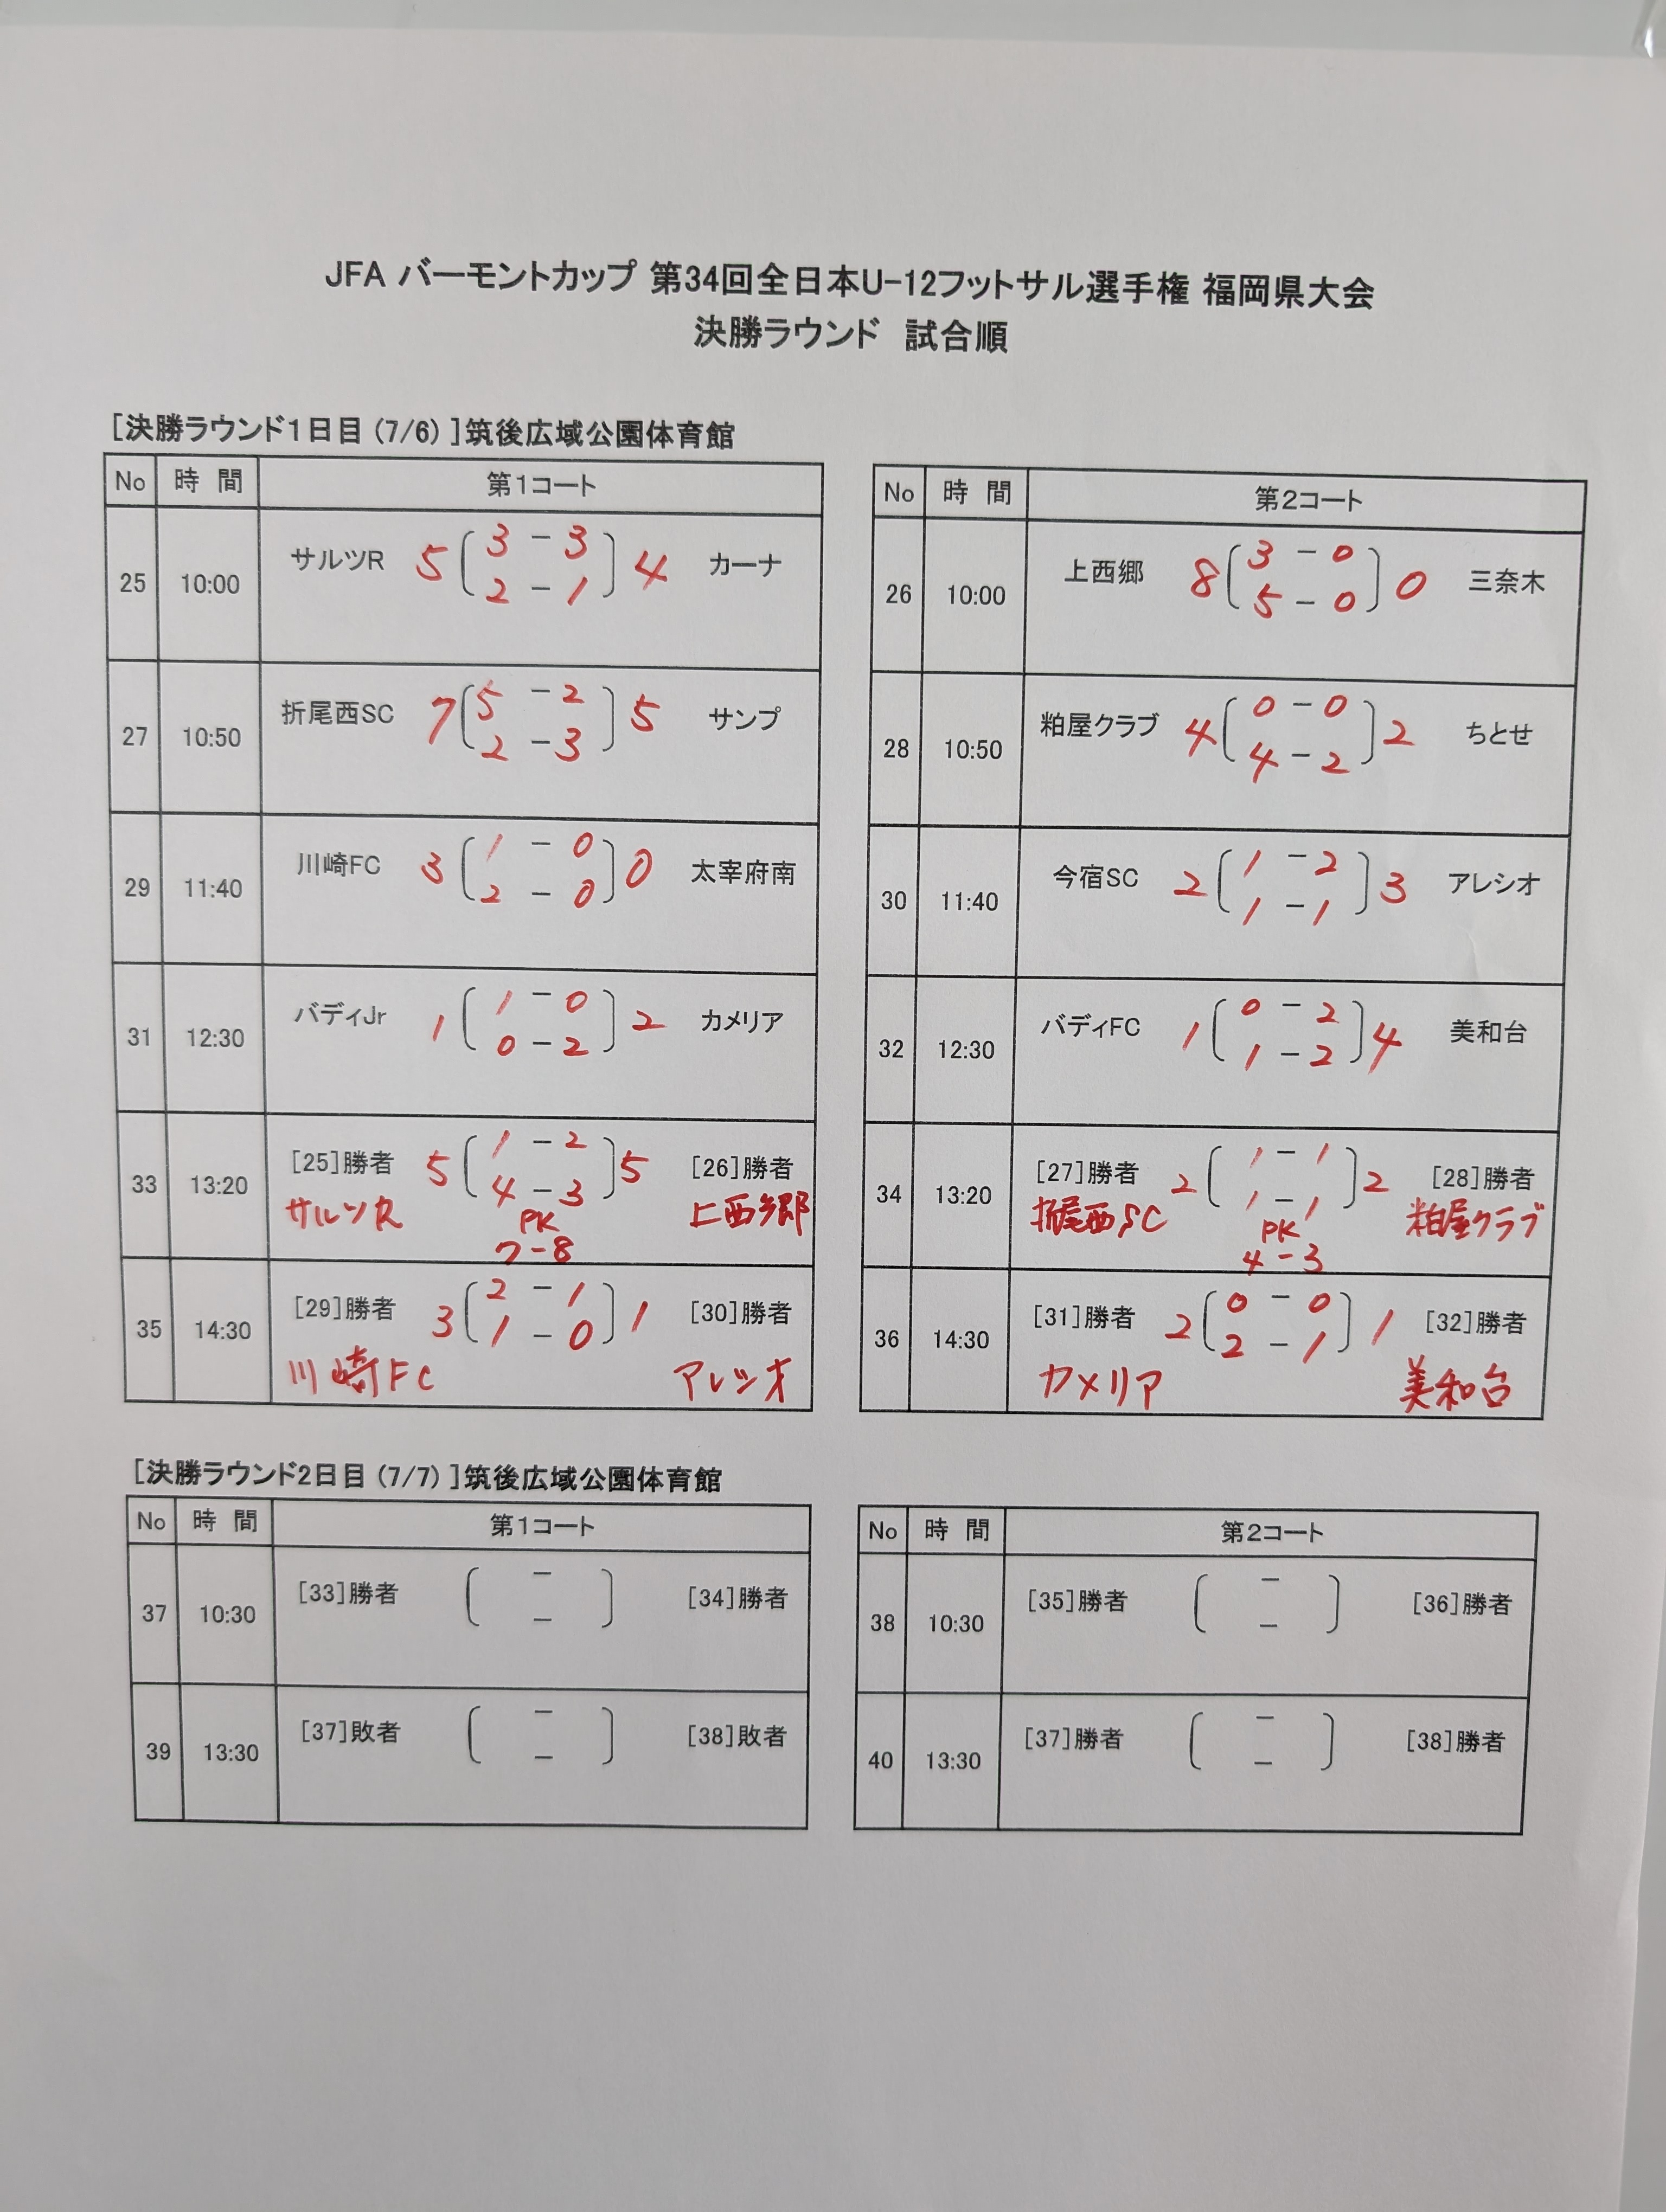 JFA バーモントカップ 第34回全日本U-12フットサル選手権 福岡県大会
決勝ラウンド 試合順
[決勝ラウンド1日目 (7/6) ]筑後広域公園体育館
No 時 間 第1コート
25 10:00 サルツR 5 ( 3 - 3 ) 4 カーナ
2 - 1
27 10:50 折尾西SC 7 ( 5 - 2 ) 5 サンプ
2 - 3
29 11:40 川崎FC 3 ( 1 - 0 ) 0 太宰府南
2 - 0
31 12:30 バディJr 1 ( 1 - 0 ) 2 カメリア
0 - 2
33 13:20 [25]勝者 5 ( 1 - 2 ) 5 [26]勝者
4 - 3
サルツR PK 上西郷
7-8
35 14:30 [29]勝者 3 ( 2 - 1 ) 1 [30]勝者
1 - 0
川崎FC アレシオ
No 時 間 第2コート
26 10:00 上西郷 8 ( 3 - 0 ) 0 三奈木
5 - 0
28 10:50 粕屋クラブ 4 ( 0 - 0 ) 2 ちとせ
4 - 2
30 11:40 今宿SC 2 ( 1 - 2 ) 3 アレシオ
1 - 1
32 12:30 バディFC 1 ( 0 - 2 ) 4 美和台
1 - 2
34 13:20 [27]勝者 2 ( 1 - 1 ) 2 [28]勝者
1 - 1
折尾西SC PK 粕屋クラブ
4-3
36 14:30 [31]勝者 2 ( 0 - 0 ) 1 [32]勝者
2 - 1
カメリア 美和台
[決勝ラウンド2日目 (7/7) ]筑後広域公園体育館
No 時 間 第1コート
37 10:30 [33]勝者 ( - ) [34]勝者
-
39 13:30 [37]敗者 ( - ) [38]敗者
-
No 時 間 第2コート
38 10:30 [35]勝者 ( - ) [36]勝者
-
40 13:30 [37]勝者 ( - ) [38]勝者
-